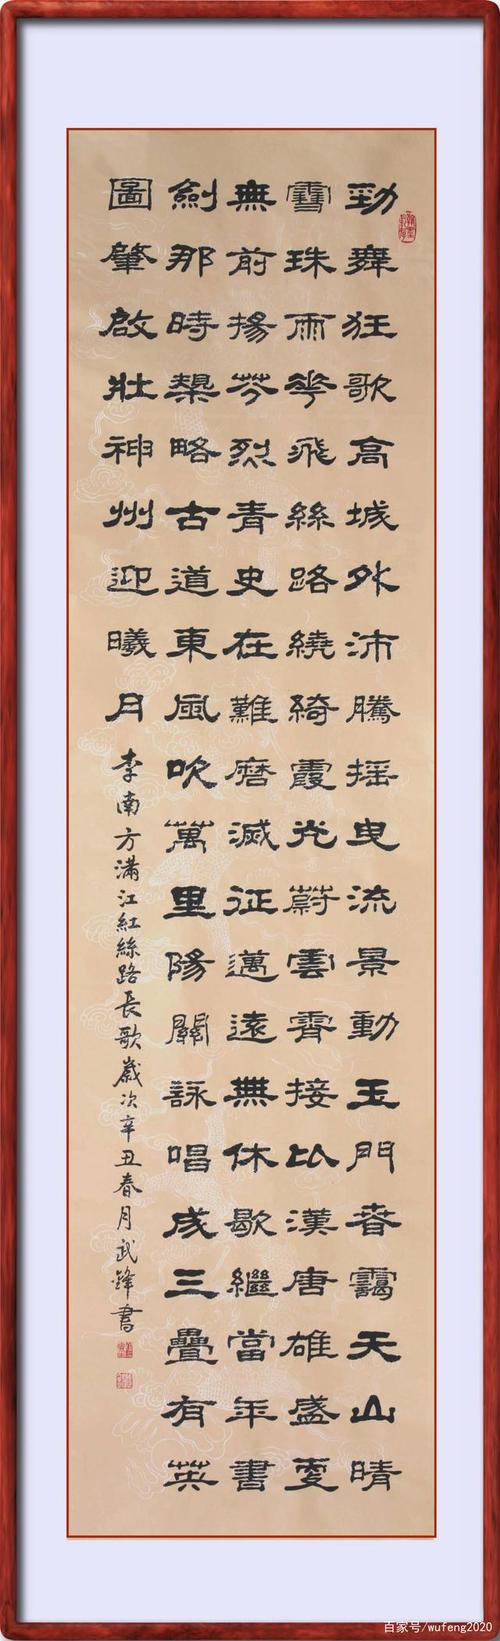 勁舞狂歌高城外沛騰摇曳流景動玉門春靄天山晴
雪珠雨花飛絲路繞綺霞光蔚雲霄接比漢唐雄盛更
無前揚芬烈青史在難磨滅征邁遠無休歇繼當年書
劍那時榘略古道東風吹萬里陽關詠唱成三疊有英
圖肇啟壯神州迎曦月
李南方滿江紅絲路長歌歲次辛丑春月武鋒書
百家号/wufeng2020